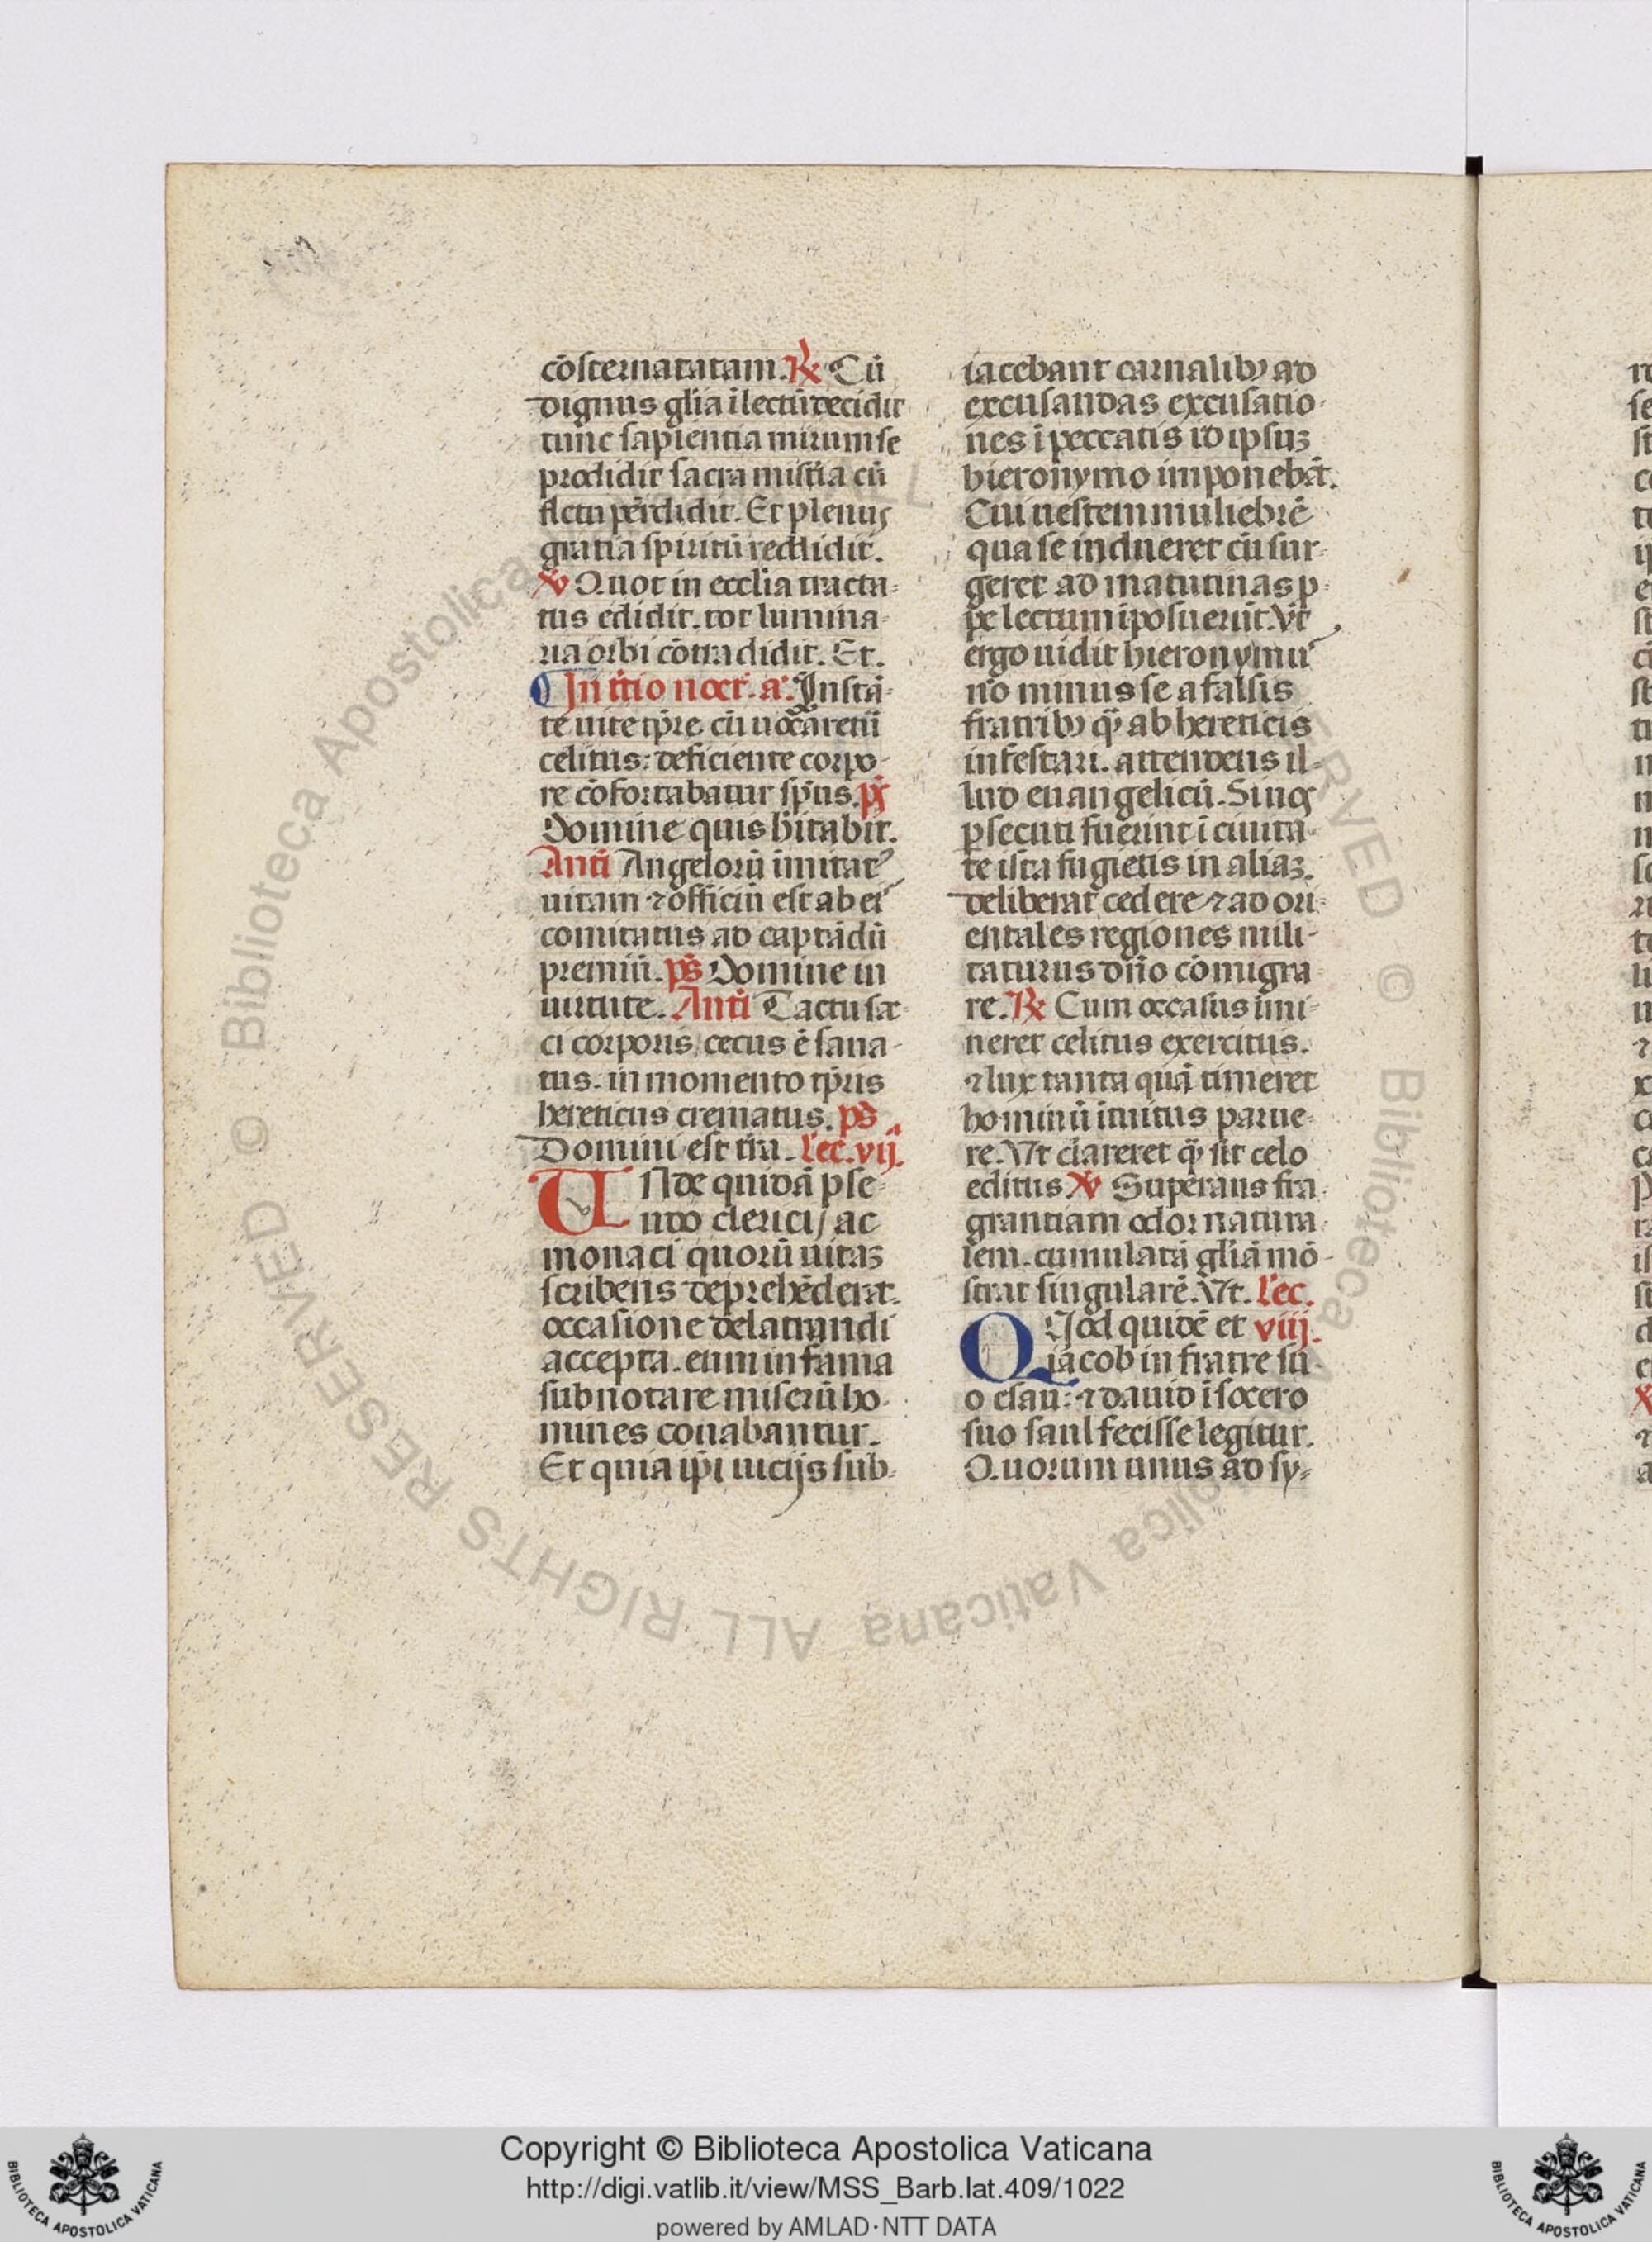 cōsternatatam. R℣ Cū
dignus gl̄ia ī lectū decidit
tunc sapientia mirum se
prodidit sacra mist̄ia cū
flctu pērdidit. Et plenus
gratia spiritū reddidit.
℣ Quot in ecclia tracta-
tus edidit. tot lumina-
ria orbi cōtradidit. Et.
¶ In t̄tio noct̄. a. Instā-
te uite tp̄re cū uocaretū
celitus: deficiente corpo-
re cōfortabatur sp̄us. ps̄
Domine quis h̄itabit.
Anti Angelorū imitat᷒
uitam ⁊ officiū est ab ei᷒
comitatus ad captādū
premiū. ps̄ Domine in
uirtute. Anti Tactu sac-
ci corporis / cecus ē sana-
tus. in momento tp̄ris
hereticus crematus. ps̄
Domini est t̄ra. Lec. vij.
UNde quidā pse-
udo clerici / ac
monaci quorū uitaʒ
scribens deprehēderat.
occasione delatrandi
accepta. eum infamia
subnotare miserū ho-
mines conabantur.
Et quia ip̄i uicijs sub-
iacebant carnalibʒ ad
excusandas excusatio-
nes ī peccatis id ipsuʒ
hieronymo imponebāt.
Cui uestem muliebrē
qua se indueret cū sur-
geret ad matutinas p-
pe lectum īposuerūt. Vt
ergo uidit hieronymu᷒
nō minus se a falsis
fratribʒ q̄ ab hereticis
infestari. attendens il-
lud euangelicū. Si uos
psecuti fuerint ī ciuita-
te ista fugietis in aliaʒ.
deliberat cedere ⁊ ad ori-
entales regiones mili-
taturus dn̄o cōmigra
re. R℣ Cum occasus īmi-
neret celitus exercitus.
⁊ lux tanta quā timeret
hominū ītuitus parue-
re. Vt clareret q̄ sit celo
editus ℣ Superans fra-
grantiam odor natura-
lem. cumulatā gl̄iā mō-
strat singularē. Vt. Lec.
QUod quidē et viij.
iacob in fratre su-
o esau: ⁊ dauid ī socero
suo saul fecisse legitur.
Quorum unus ad sy-
Copyright © Biblioteca Apostolica Vaticana
http://digi.vatlib.it/view/MSS_Barb.lat.409/1022
powered by AMLAD·NTT DATA
BIBLIOTECA APOSTOLICA VATICANA
BIBLIOTECA APOSTOLICA VATICANA
© Biblioteca Apostolica Vaticana ALL RIGHTS RESERVED